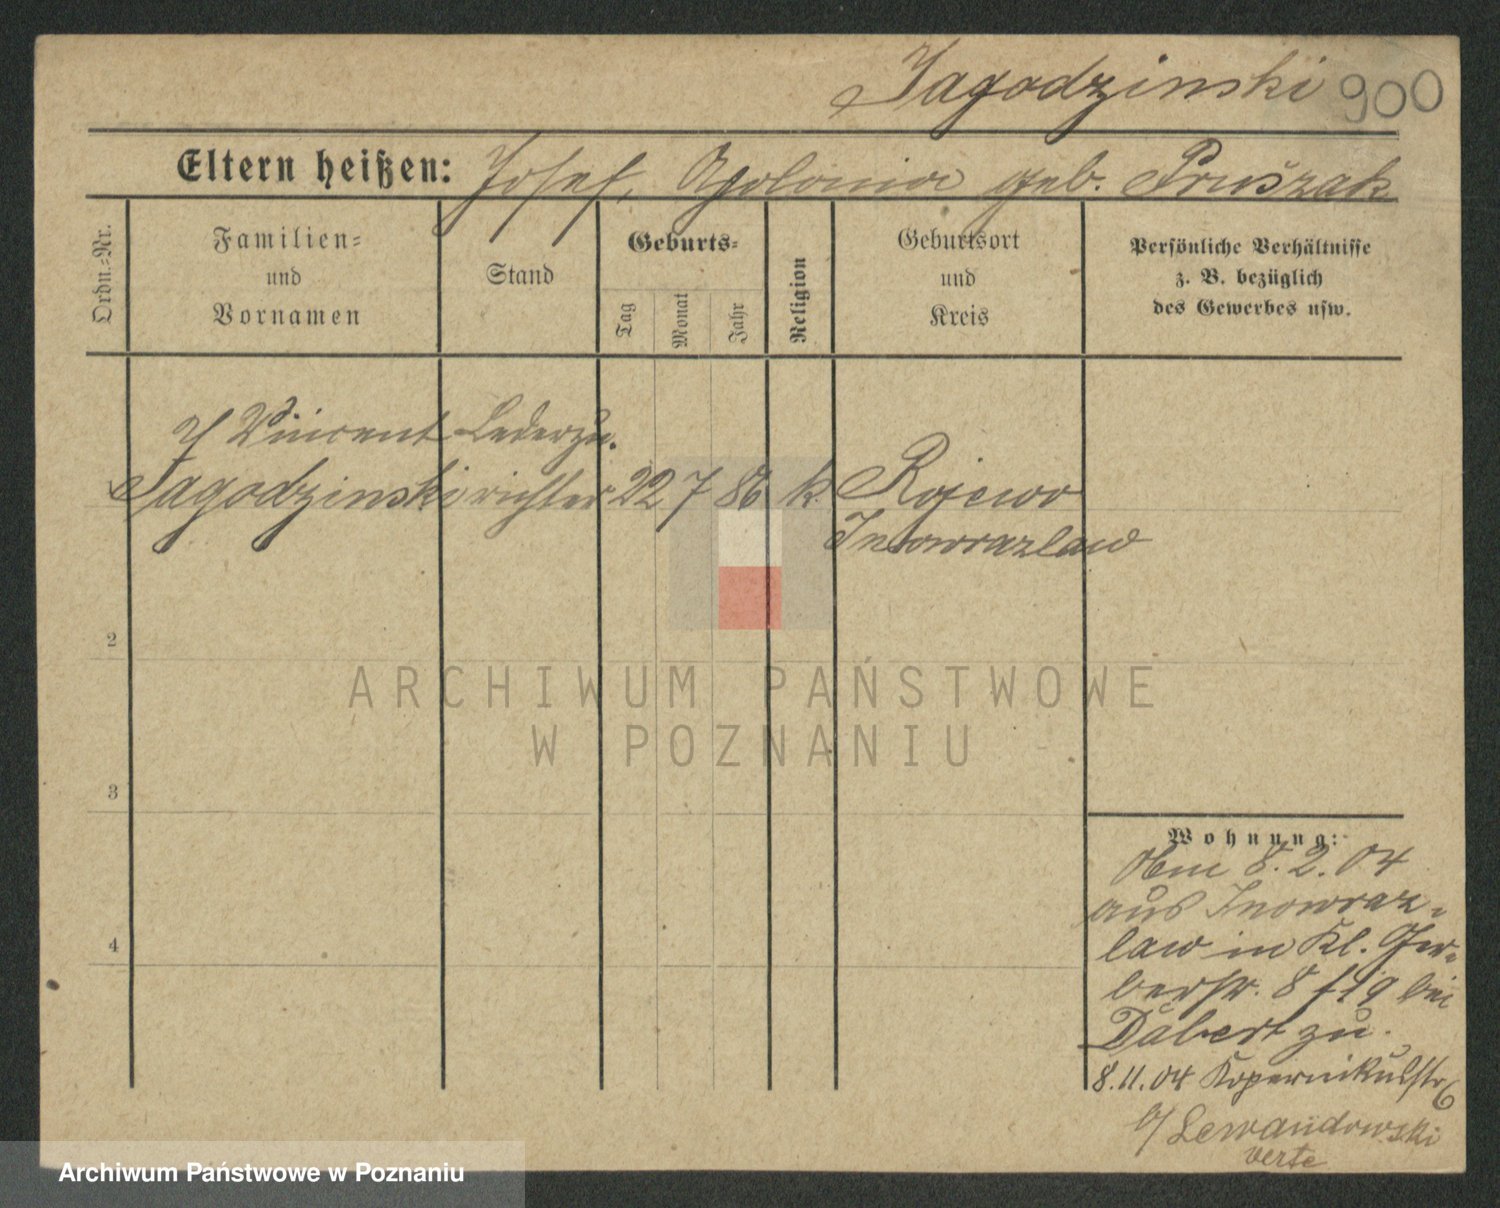 Jagodzinski 900
Eltern heißen: Josef, Apolonia geb. Pruszak
Ordn.-Nr.
Familien-
und
Vornamen
Stand
Geburts-
Tag
Monat
Jahr
Religion
Geburtsort
und
Kreis
Persönliche Verhältnisse
z. B. bezüglich
des Gewerbes usw.
Vincent Lederzu-
Jagodzinski richter 22 7 86 k. Rojewo
Inowrazlaw
2
3
4
Wohnung:
8.2.04
aus Inowraz-
law in Kl. Ger-
berstr. 8 bei
Däbert zu.
8.11.04 Kopernikusstr 6
b/ Lewandowski
verte
ARCHIWUM PAŃSTWOWE
W POZNANIU
Archiwum Państwowe w Poznaniu